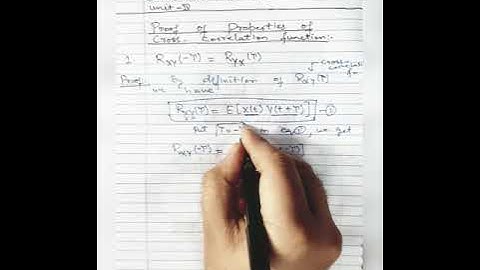 Unit-D
Proof of Properties of
Cross-Correlation function:-
1 Rxy(-T) = Ryx(T)
Proof By definition of Rxy(T) cross-correlation fn
we have
Rxy(T) = E[x(t) Y(t+T)] -①
Put T=- in eq ①, we get
Rxy(-T) = -T)]